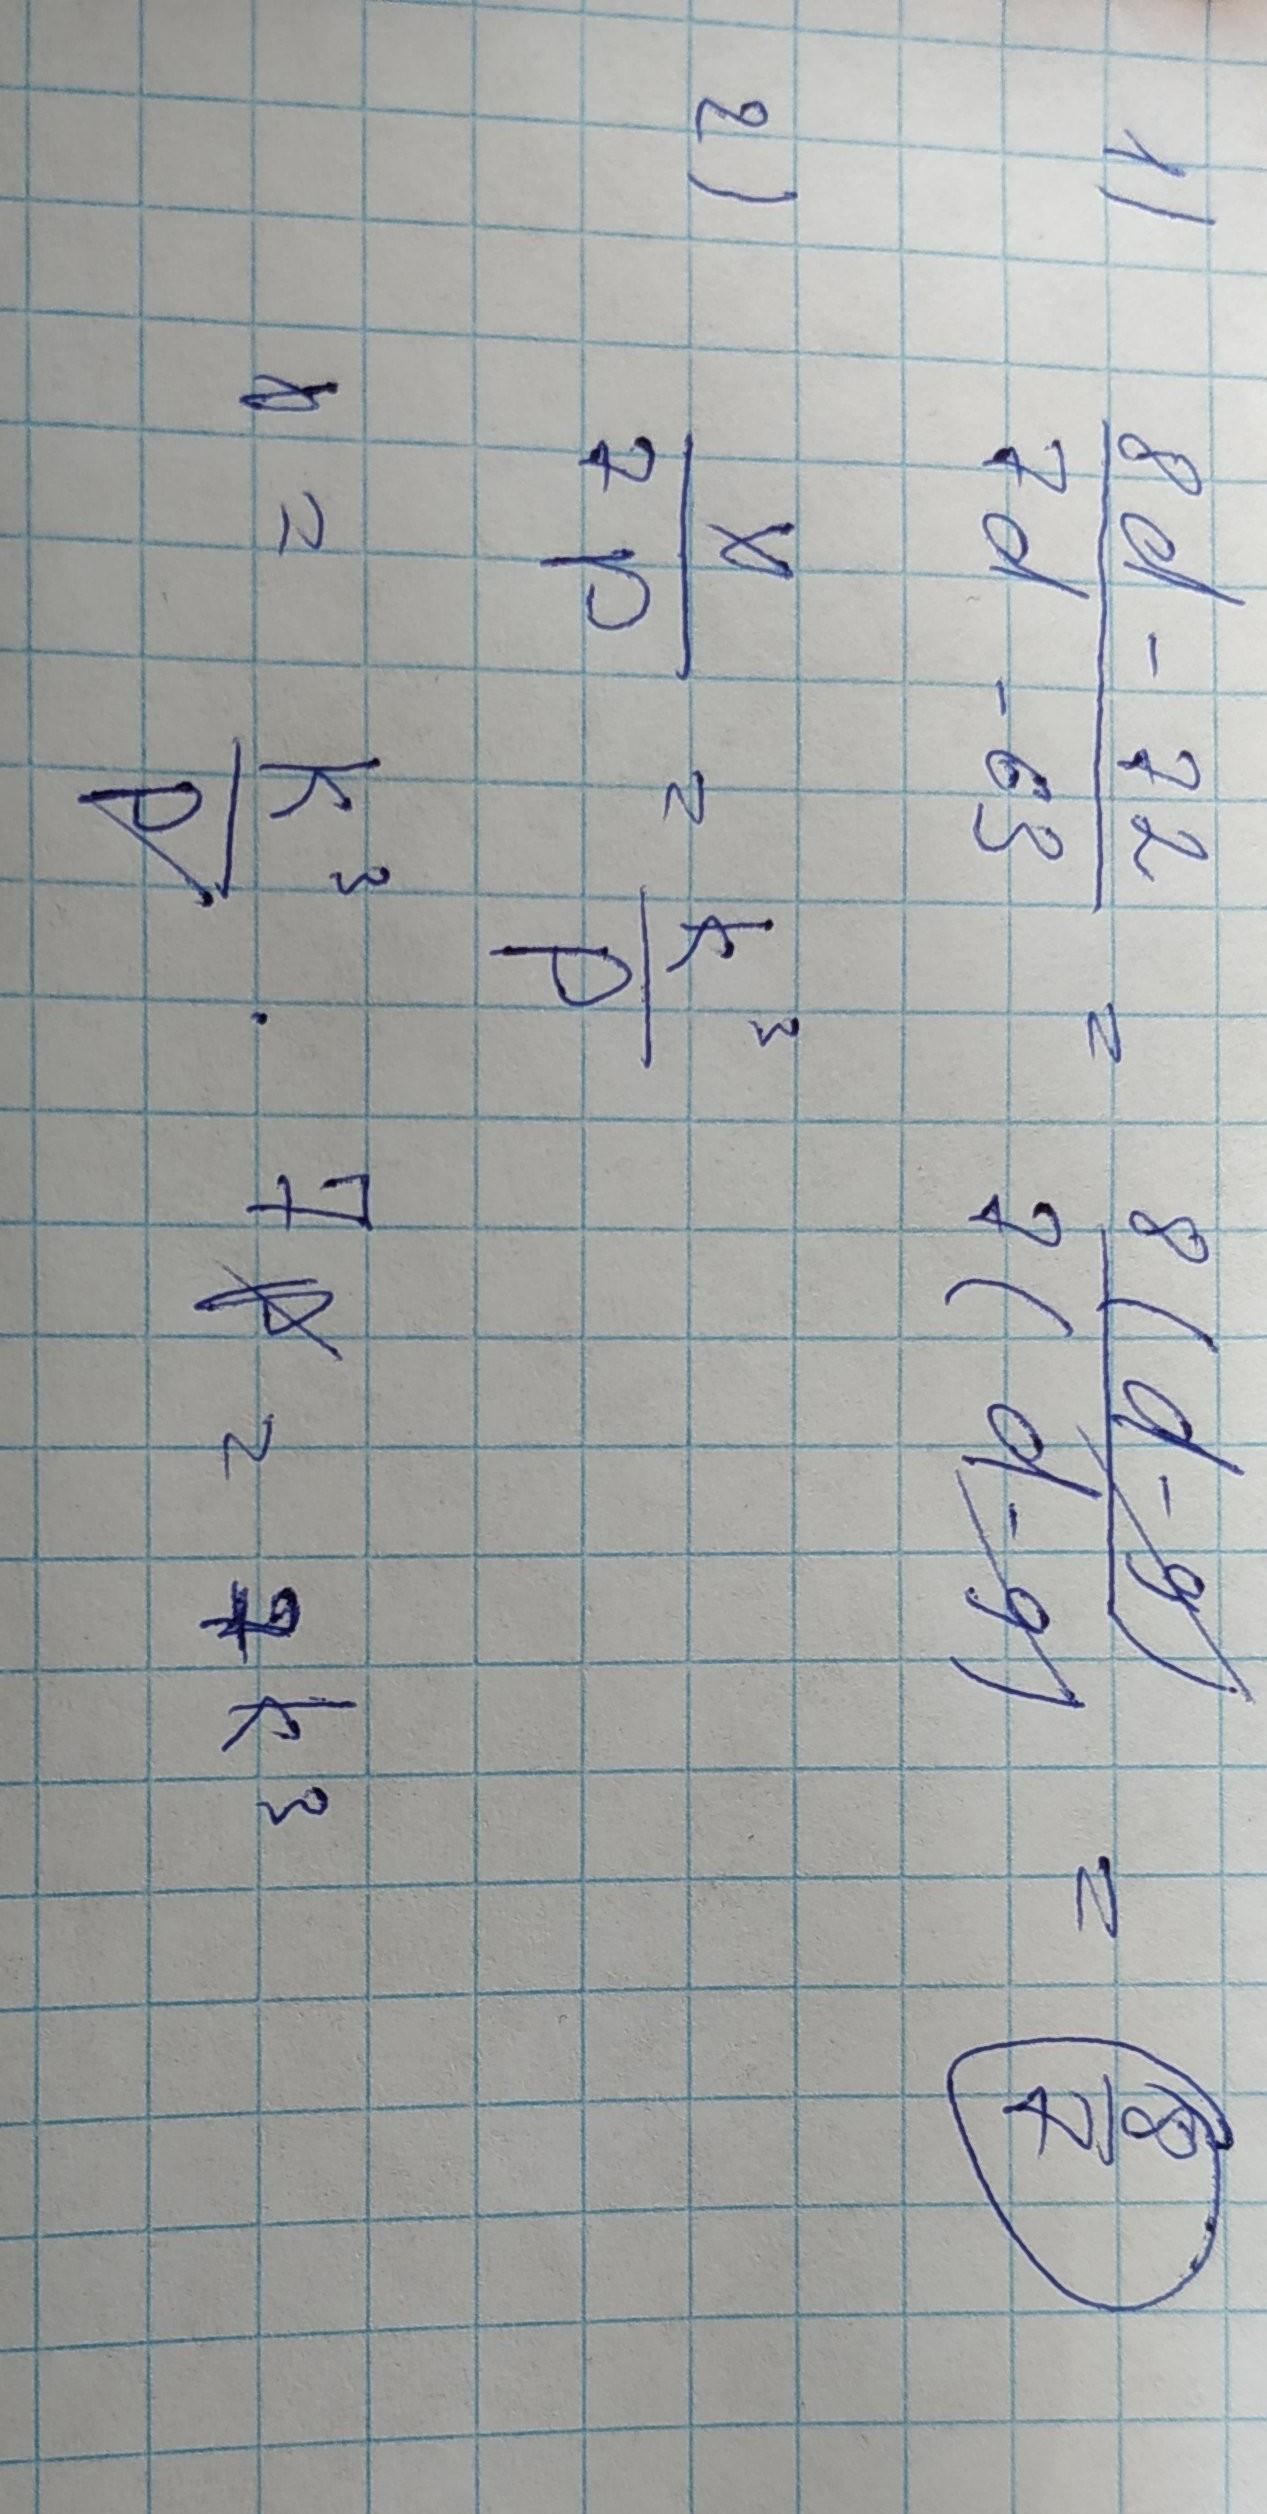 1) (8d - 72)/(7d - 63) = 8(d-9)/7(d-9) = 8/7
2) x/7p = k³/p
x = k³/p · 7p = 7k³